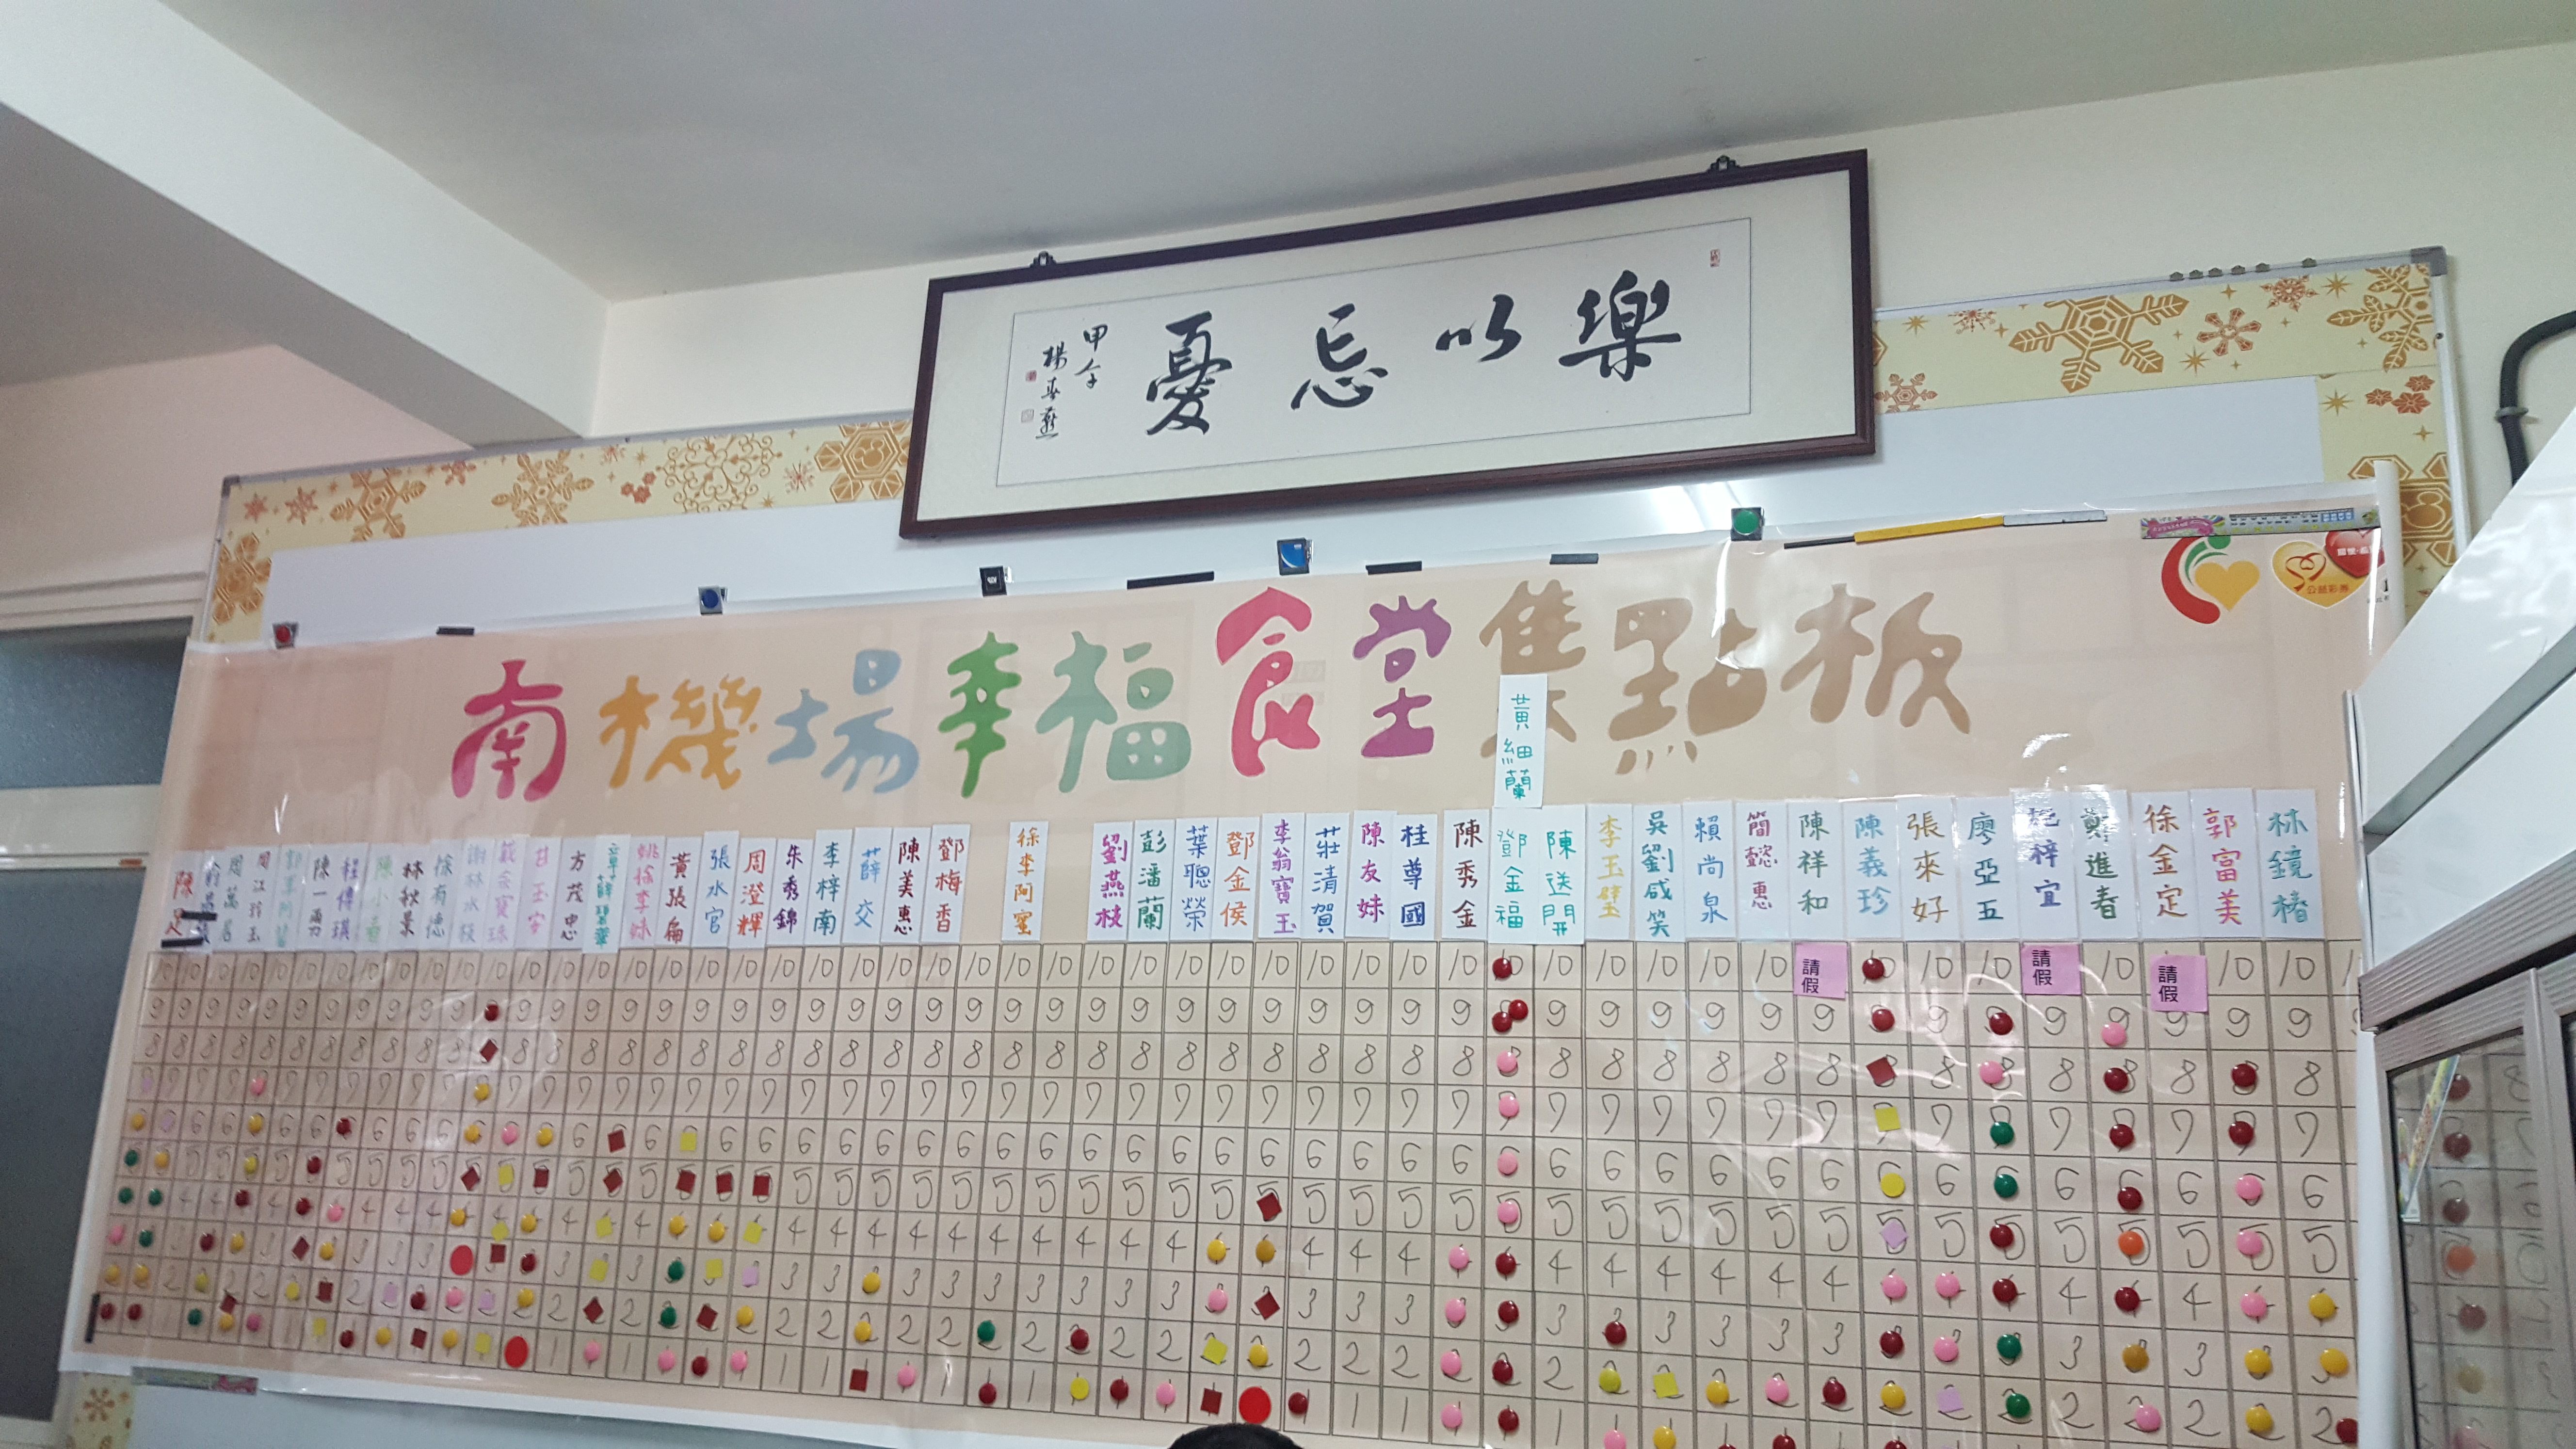 樂以忘憂
甲午
楊春燕
南機場幸福食堂集點板
公益彩券
黃細蘭
陳足
周萬居
陳一勇
陳小春
林秋景
徐有德
謝林水枝
甘玉安
方茂忠
姚徐李妹
黃張扁
張水官
周澄輝
朱秀錦
李梓南
薛交
陳美惠
鄧梅香
徐李阿蜜
劉燕枝
彭潘蘭
葉聰榮
鄧金侯
李翁寶玉
莊清賀
陳友妹
桂尊國
陳秀金
鄧金福
陳送開
李玉璧
吳劉咸笑
賴尚泉
簡懿惠
陳祥和
陳義珍
張來好
廖亞五
梓宜
鄭進春
徐金定
郭富美
林鏡椿
請假
請假
請假
10
9
8
7
6
5
4
3
2
1